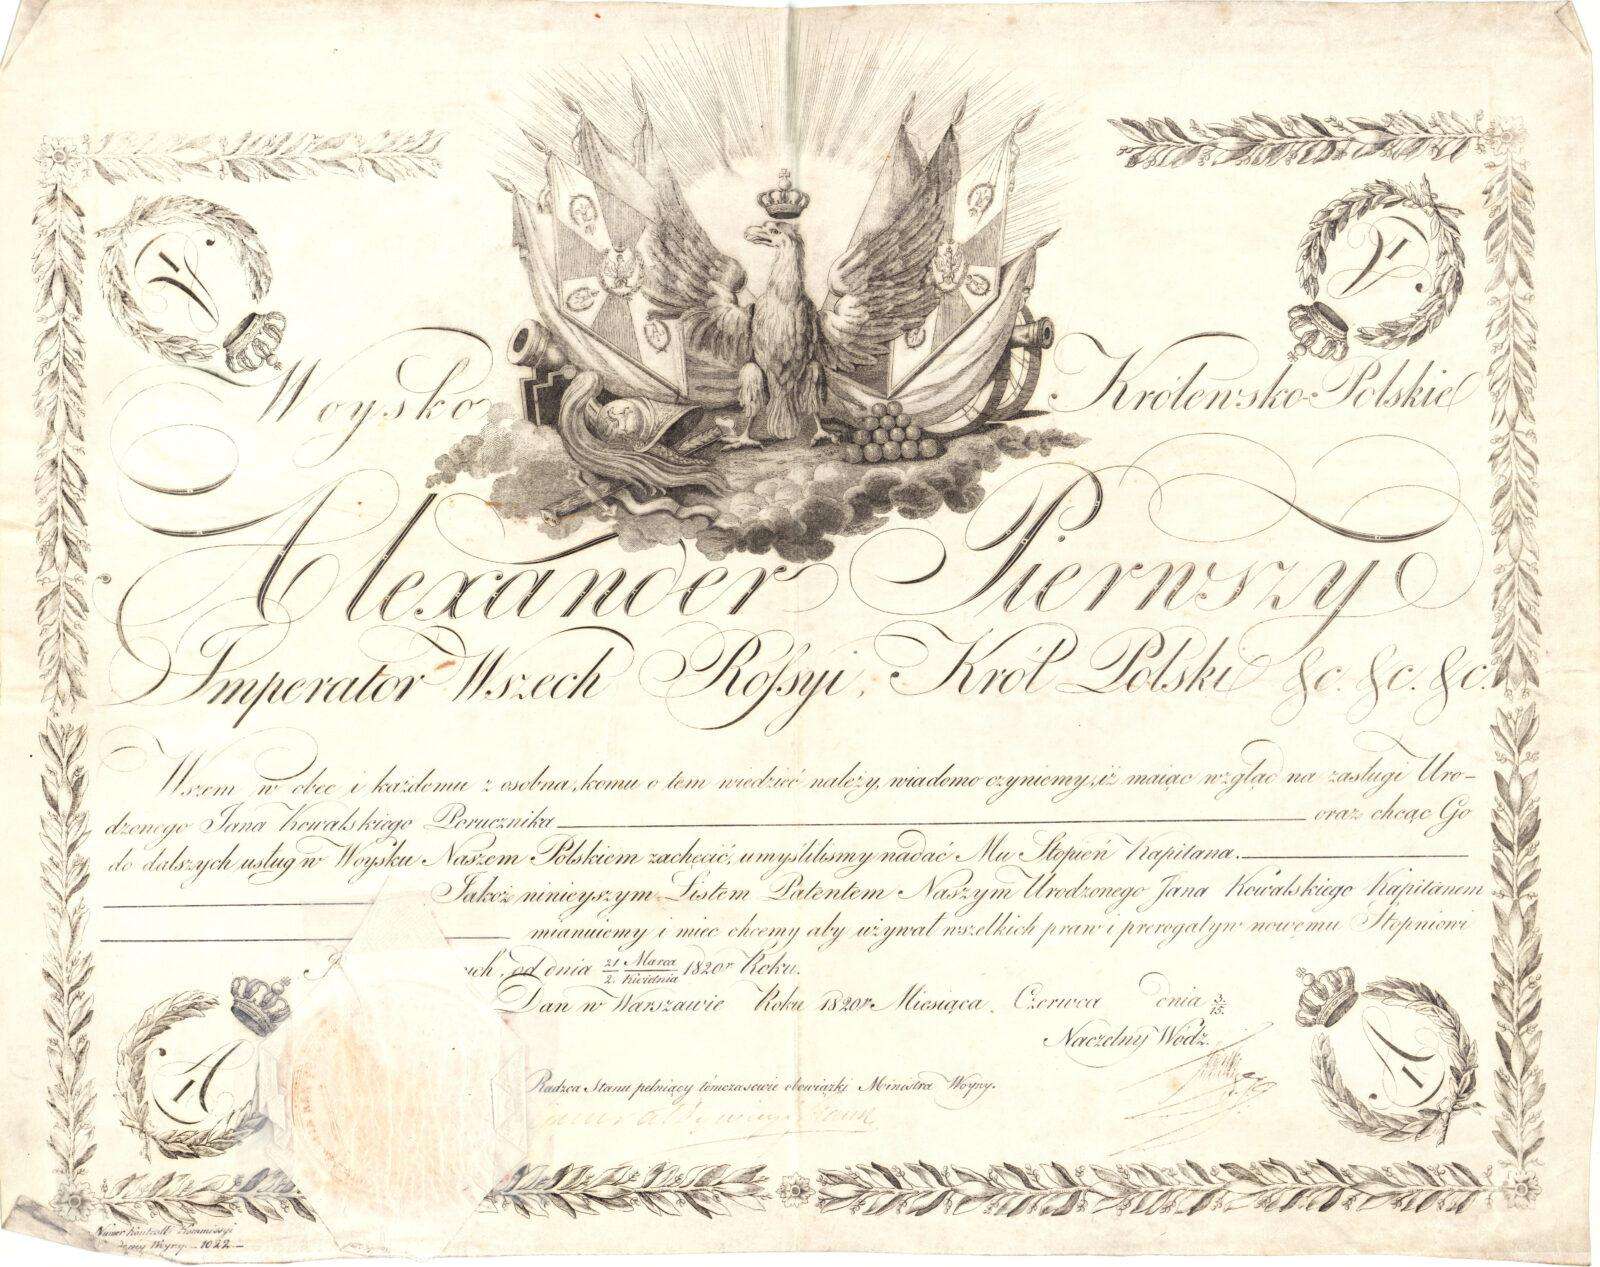 Woysko Królewsko-Polskie
Alexander Pierwszy
Imperator Wszech Rossyi, Król Polski &c. &c. &c.
Wszem w obec i każdemu z osobna, komu o tem wiedzieć należy, wiadomo czyniemy, iż maiąc wzgląd na zasługi Uro-
dzonego Jana Kowalskiego Porucznika oraz chcąc Go
do dalszych usług w Woysku Naszem Polskiem zachęcić, umyśliliśmy nadać Mu Stopień Kapitana.
Jakoż ninieyszym Listem Patentem Naszym Urodzonego Jana Kowalskiego Kapitanem
mianuiemy i mieć chcemy aby używał wszelkich praw i prerogatyw nowemu Stopniowi
od dnia 21 Marca / 2. Kwietnia 1820r Roku.
Dan w Warszawie Roku 1820r Miesiąca Czerwca dnia 3./15.
Naczelny Wódz.
Radzca Stanu pełniący tymczasowie obowiązki Ministra Woyny.
Numer Kontrolli Kommissyi
Woyny. 1022
A I
A I
A I
A I